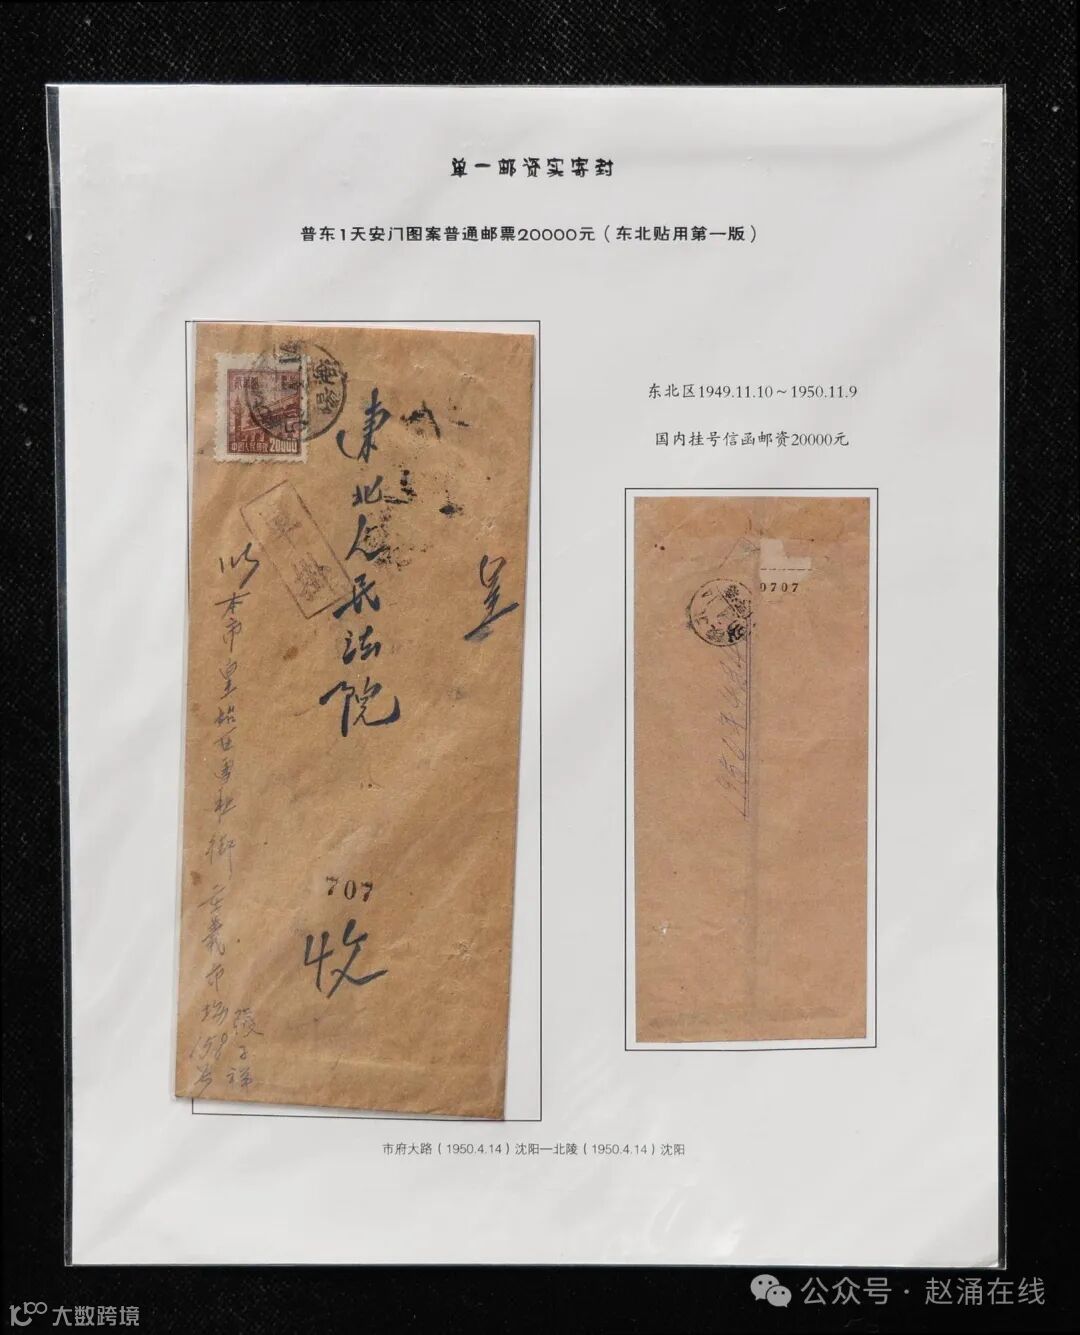 单一邮资实寄封
普东1天安门图案普通邮票20000元（东北贴用第一版）
东北区1949.11.10～1950.11.9
国内挂号信函邮资20000元
中国人民邮政
20000
東北人民法院
呈
707
收
本市皇姑区
街
市場
158号
張子祥
0707
市府大路（1950.4.14）沈阳—北陵（1950.4.14）沈阳
公众号·赵涌在线
大数跨境